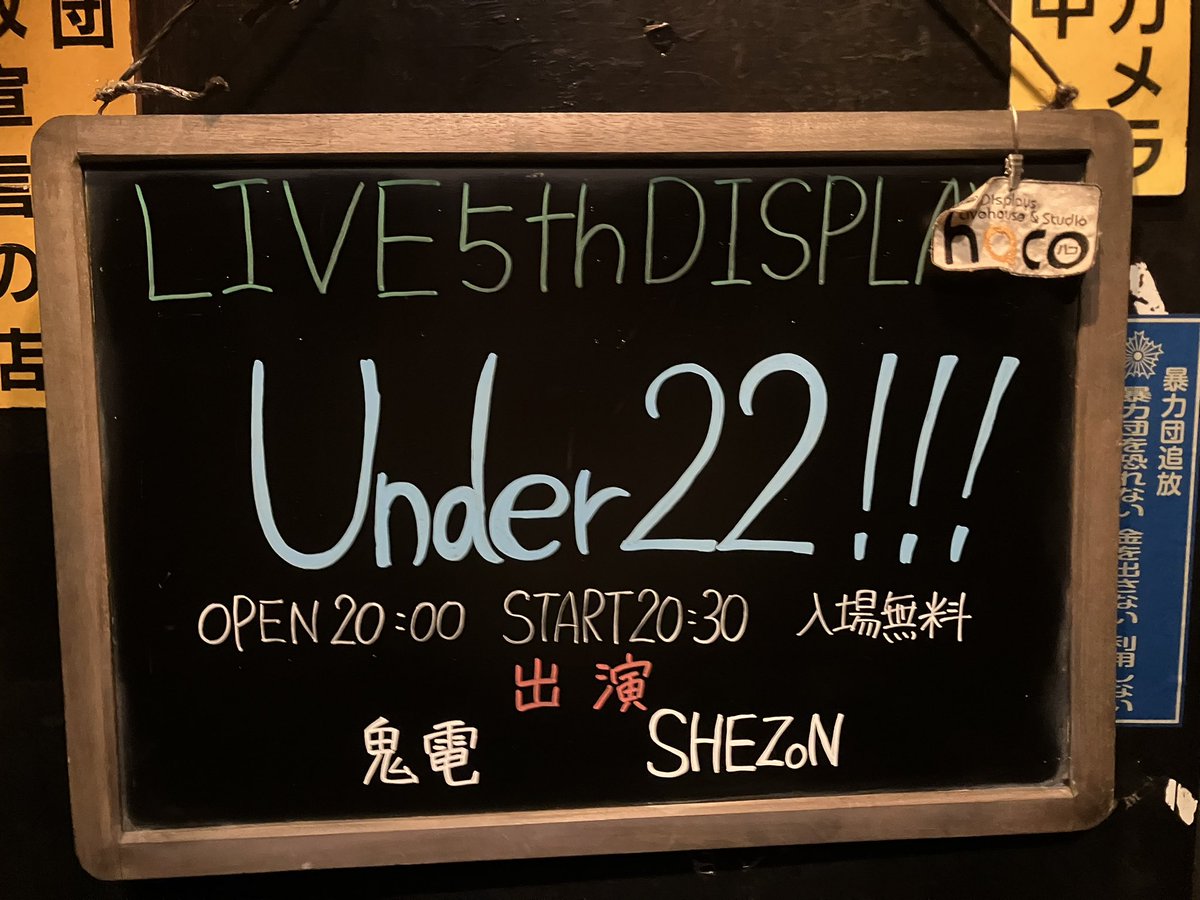 LIVE 5th DISPLA
Displays
Livehouse & Studio
haco
ハコ
Under 22!!!
OPEN 20:00 START 20:30 入場無料
出演
鬼電 SHEZoN
団
宣言の店
カメラ
中
暴力団追放
暴力団を恐れない 金を出さない 利用しない